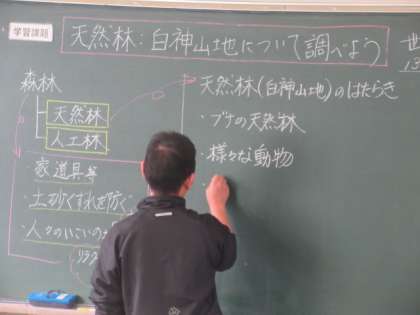 学習課題
天然林:白神山地について調べよう
世
13
森林
天然林
人工林
家道具等
土砂くずれを防ぐ
人々のいこいの
リラク
天然林(白神山地)のはたらき
・ブナの天然林
・様々な動物